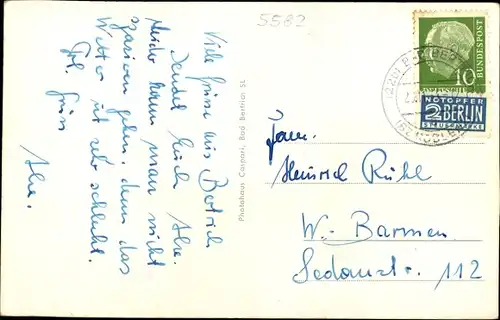 5582
Viele Grüsse aus Bertrich
sendet Euch
Leider kann man nicht
spazieren gehen, denn das
Wetter ist sehr schlecht.
Grüss
Photohaus Caspari, Bad Bertrich SL
DEUTSCHE BUNDESPOST
10
NOTOPFER
2 BERLIN
STEUERMARKE
Fam.
Heinrich Rühl
W.-Barmen
Sedanstr. 112